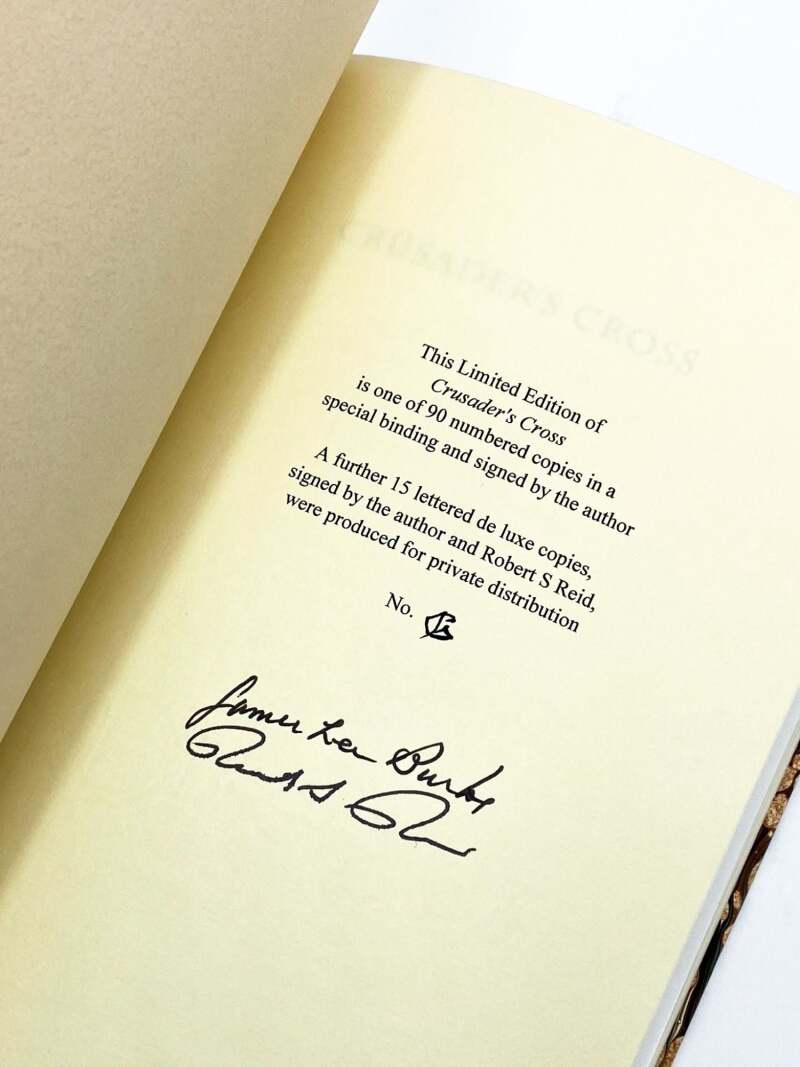 CRUSADER'S CROSS
This Limited Edition of
Crusader's Cross
is one of 90 numbered copies in a
special binding and signed by the author
A further 15 lettered de luxe copies,
signed by the author and Robert S Reid,
were produced for private distribution
No.
James Lee Burke
Robert S Reid